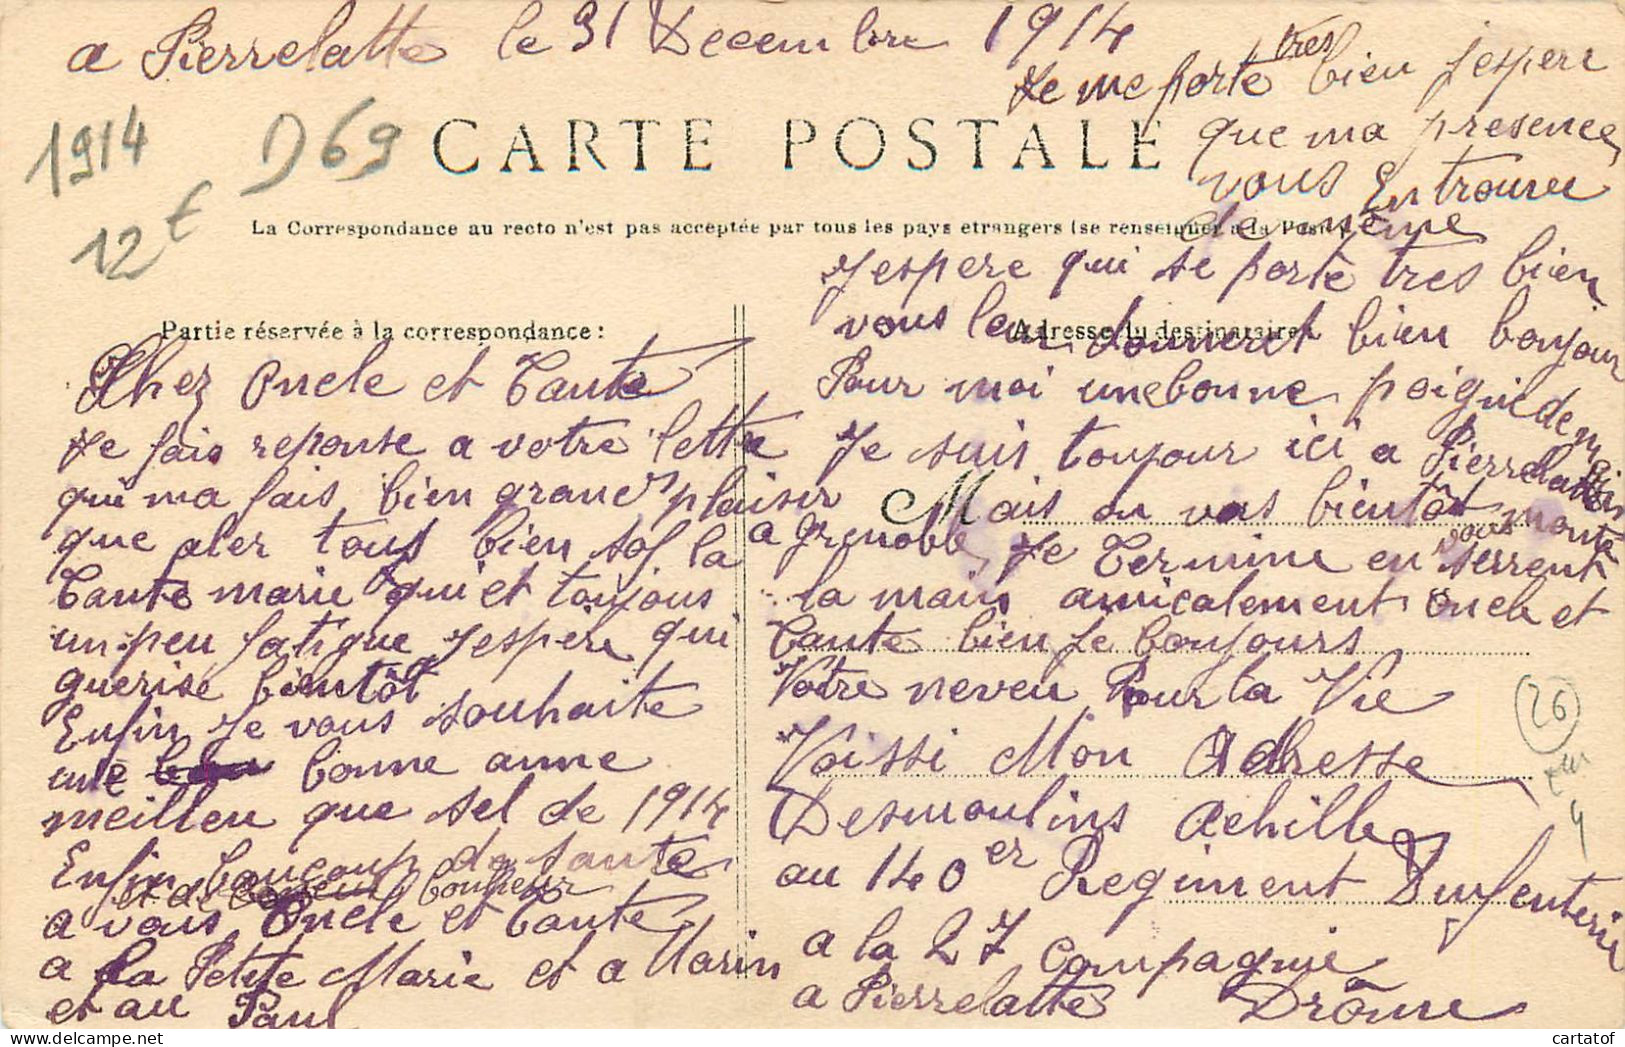 a Pierrelatte le 31 Decembre 1914
1914
D69
12€
CARTE POSTALE
La Correspondance au recto n'est pas acceptée par tous les pays etrangers (se renseigner a la Poste)
Partie réservée à la correspondance :
Chez Oncle et Tante
Je fais reponse a votre lettre
qui ma fais bien grand plaiser
que aler tous bien sof la
Tante marie qui et toujous
un peu fatigue Jespere qui
guerise bientôt
Enfin Je vous souhaite
une bonne anne
meilleu que sel de 1914
Enfin boucoup de sante
et de bonheur
a vous Oncle et Tante
a la Petite Marie et a Marin
et au Paul
Je me porte tres bien Jespere
que ma presence
vous Entrouve
de même
Jespere qui se porte tres bien
Adresse du destinataire
vous leur donneret bien boujour
Pour moi une bonne poigne de main
Je suis toujour ici a Pierrelatte
Mais on vas bientôt monte
a grenoble, Je Termine en vous serrent
la main amicalement Oncle et
Tante bien Je boujours
Votre neveu Pour la Vie
Voissi Mon Adresse
Desmoulins Achille
au 140er Regiment Dinfenterie
a la 27 Compagnie
a Pierrelatte Drôme
26
4
cartatof